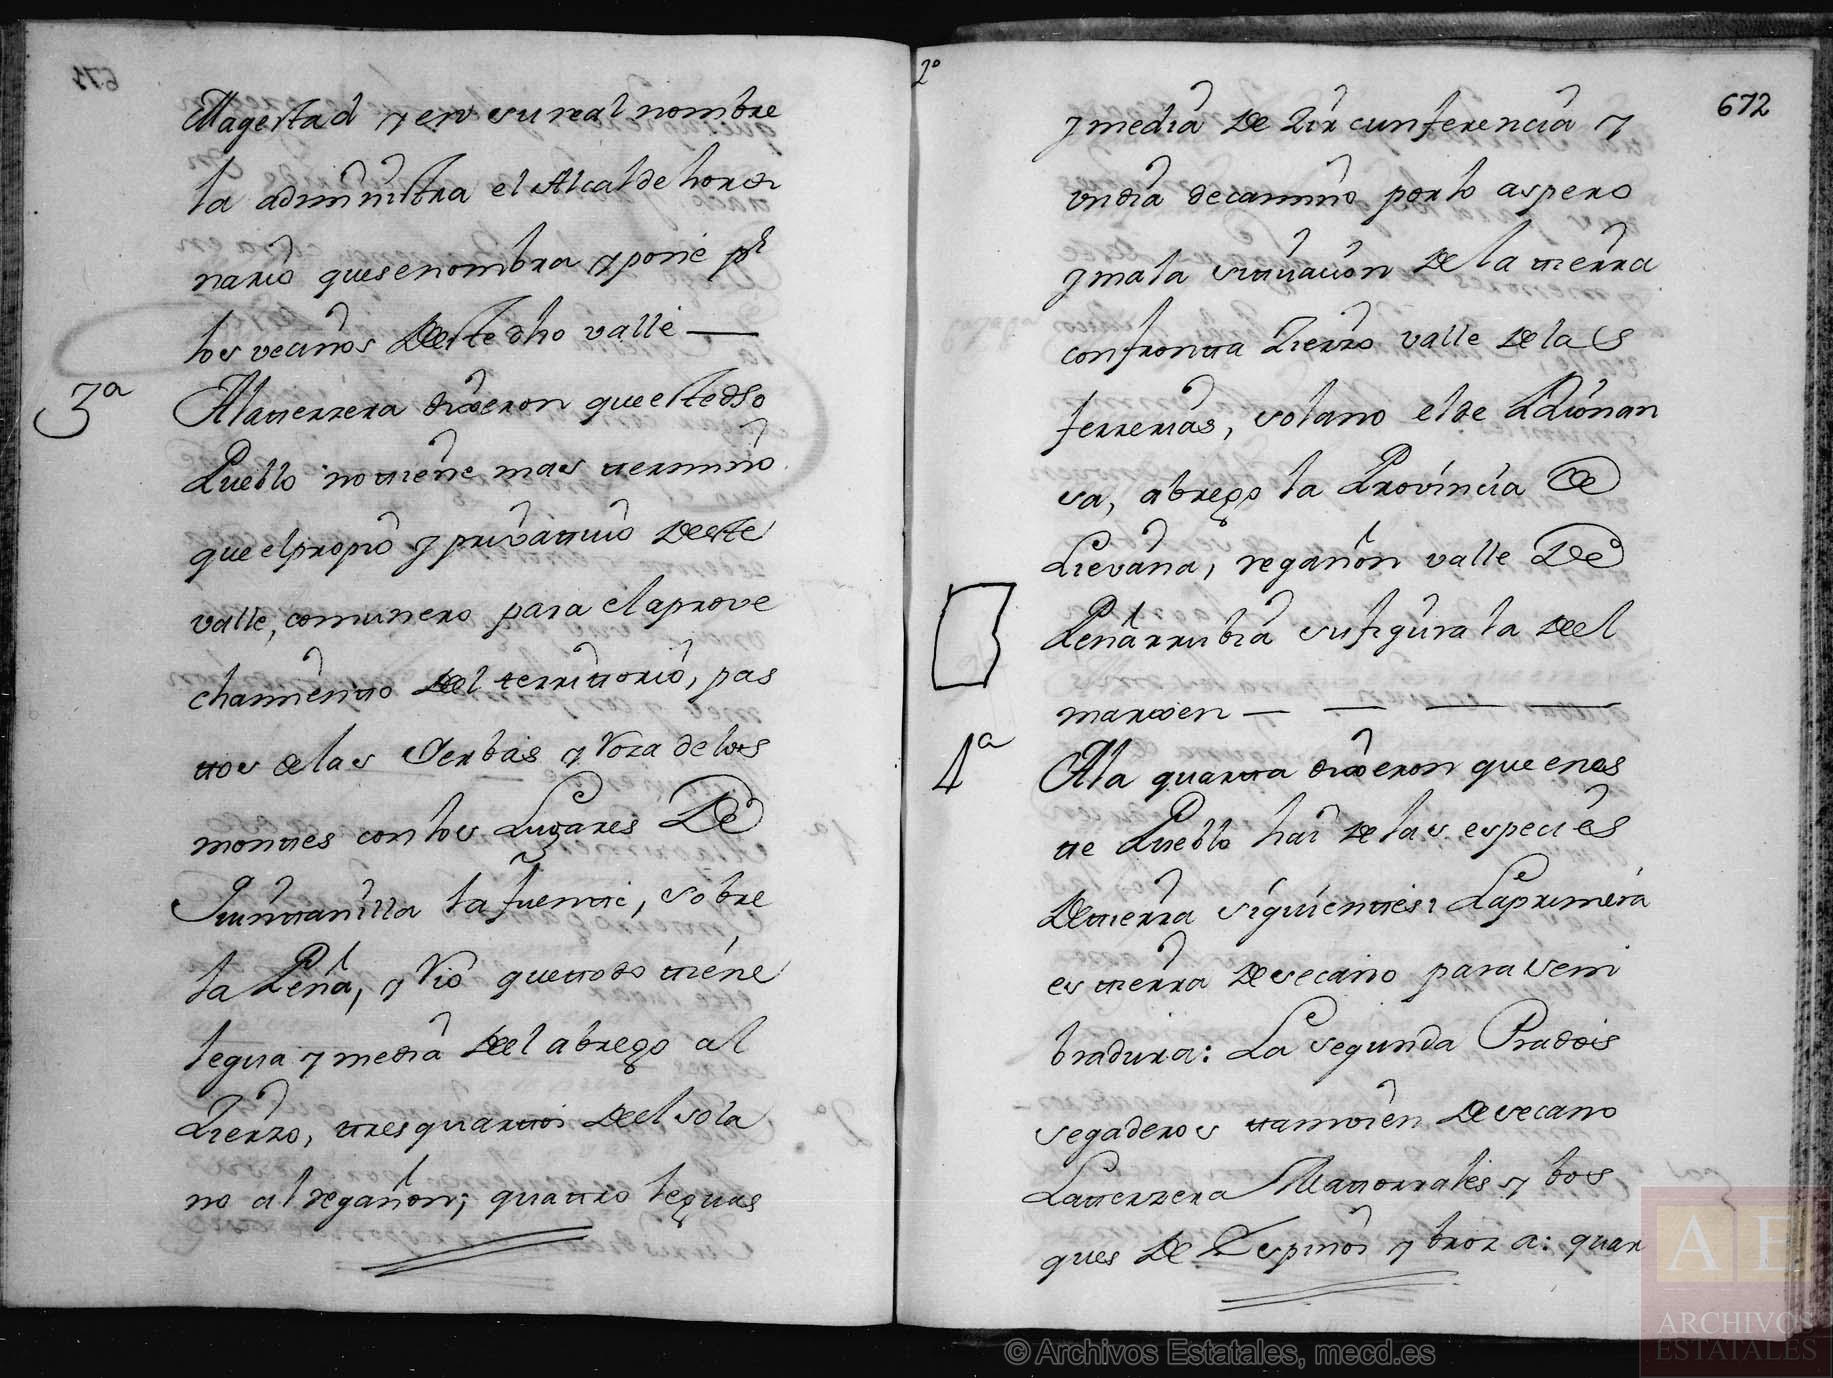 Magestad y en su real nombre
la administra el Alcalde hordi
nario que se nombra y pone pr
los vecinos deste dho valle —
3ª
A la tterzera dixeron que este dho
Pueblo no ttiene mas ttermino
que el propio y privattivo deste
valle, comunero para el aprove
chamientto del territtorio, pas
ttos de las Yerbas y Roza de los
monttes con los Lugares De
Quinttanilla la fuentte, sobre
la Peña, y Rio que ttodo ttiene
legua y media del abrego al
Zierzo, ttres quarttos del sola
no al regañon; quattro leguas
2º
672
y media de Zircunferencia y
un dia de camino por lo aspero
y mala sittuacion de la ttierra
confrontta Zierzo valle de las
ferrerias, solano el de Rionan
sa, abrego la Provincia de
Lievana, regañon valle De
Peñarrubia su figura la del
marxen — — — —
4ª
A la quartta dixeron que en es
tte Pueblo hai de las especies
de ttierra siguienttes: La primera
es ttierra de secano para sem
bradura: La segunda Prados
segaderos ttambien de secano
La tterzera Mattorrales y bos
ques de Espinos y broza: quar
© Archivos Estatales, mecd.es
AE
ARCHIVOS
ESTATALES